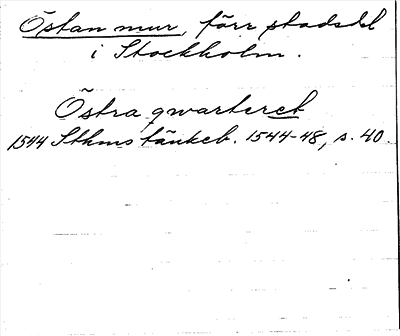 Östan mur, förr stadsdel
i Stockholm.
Östra qwarteret
1544 Sthms tänkeb. 1544-48, s. 40.